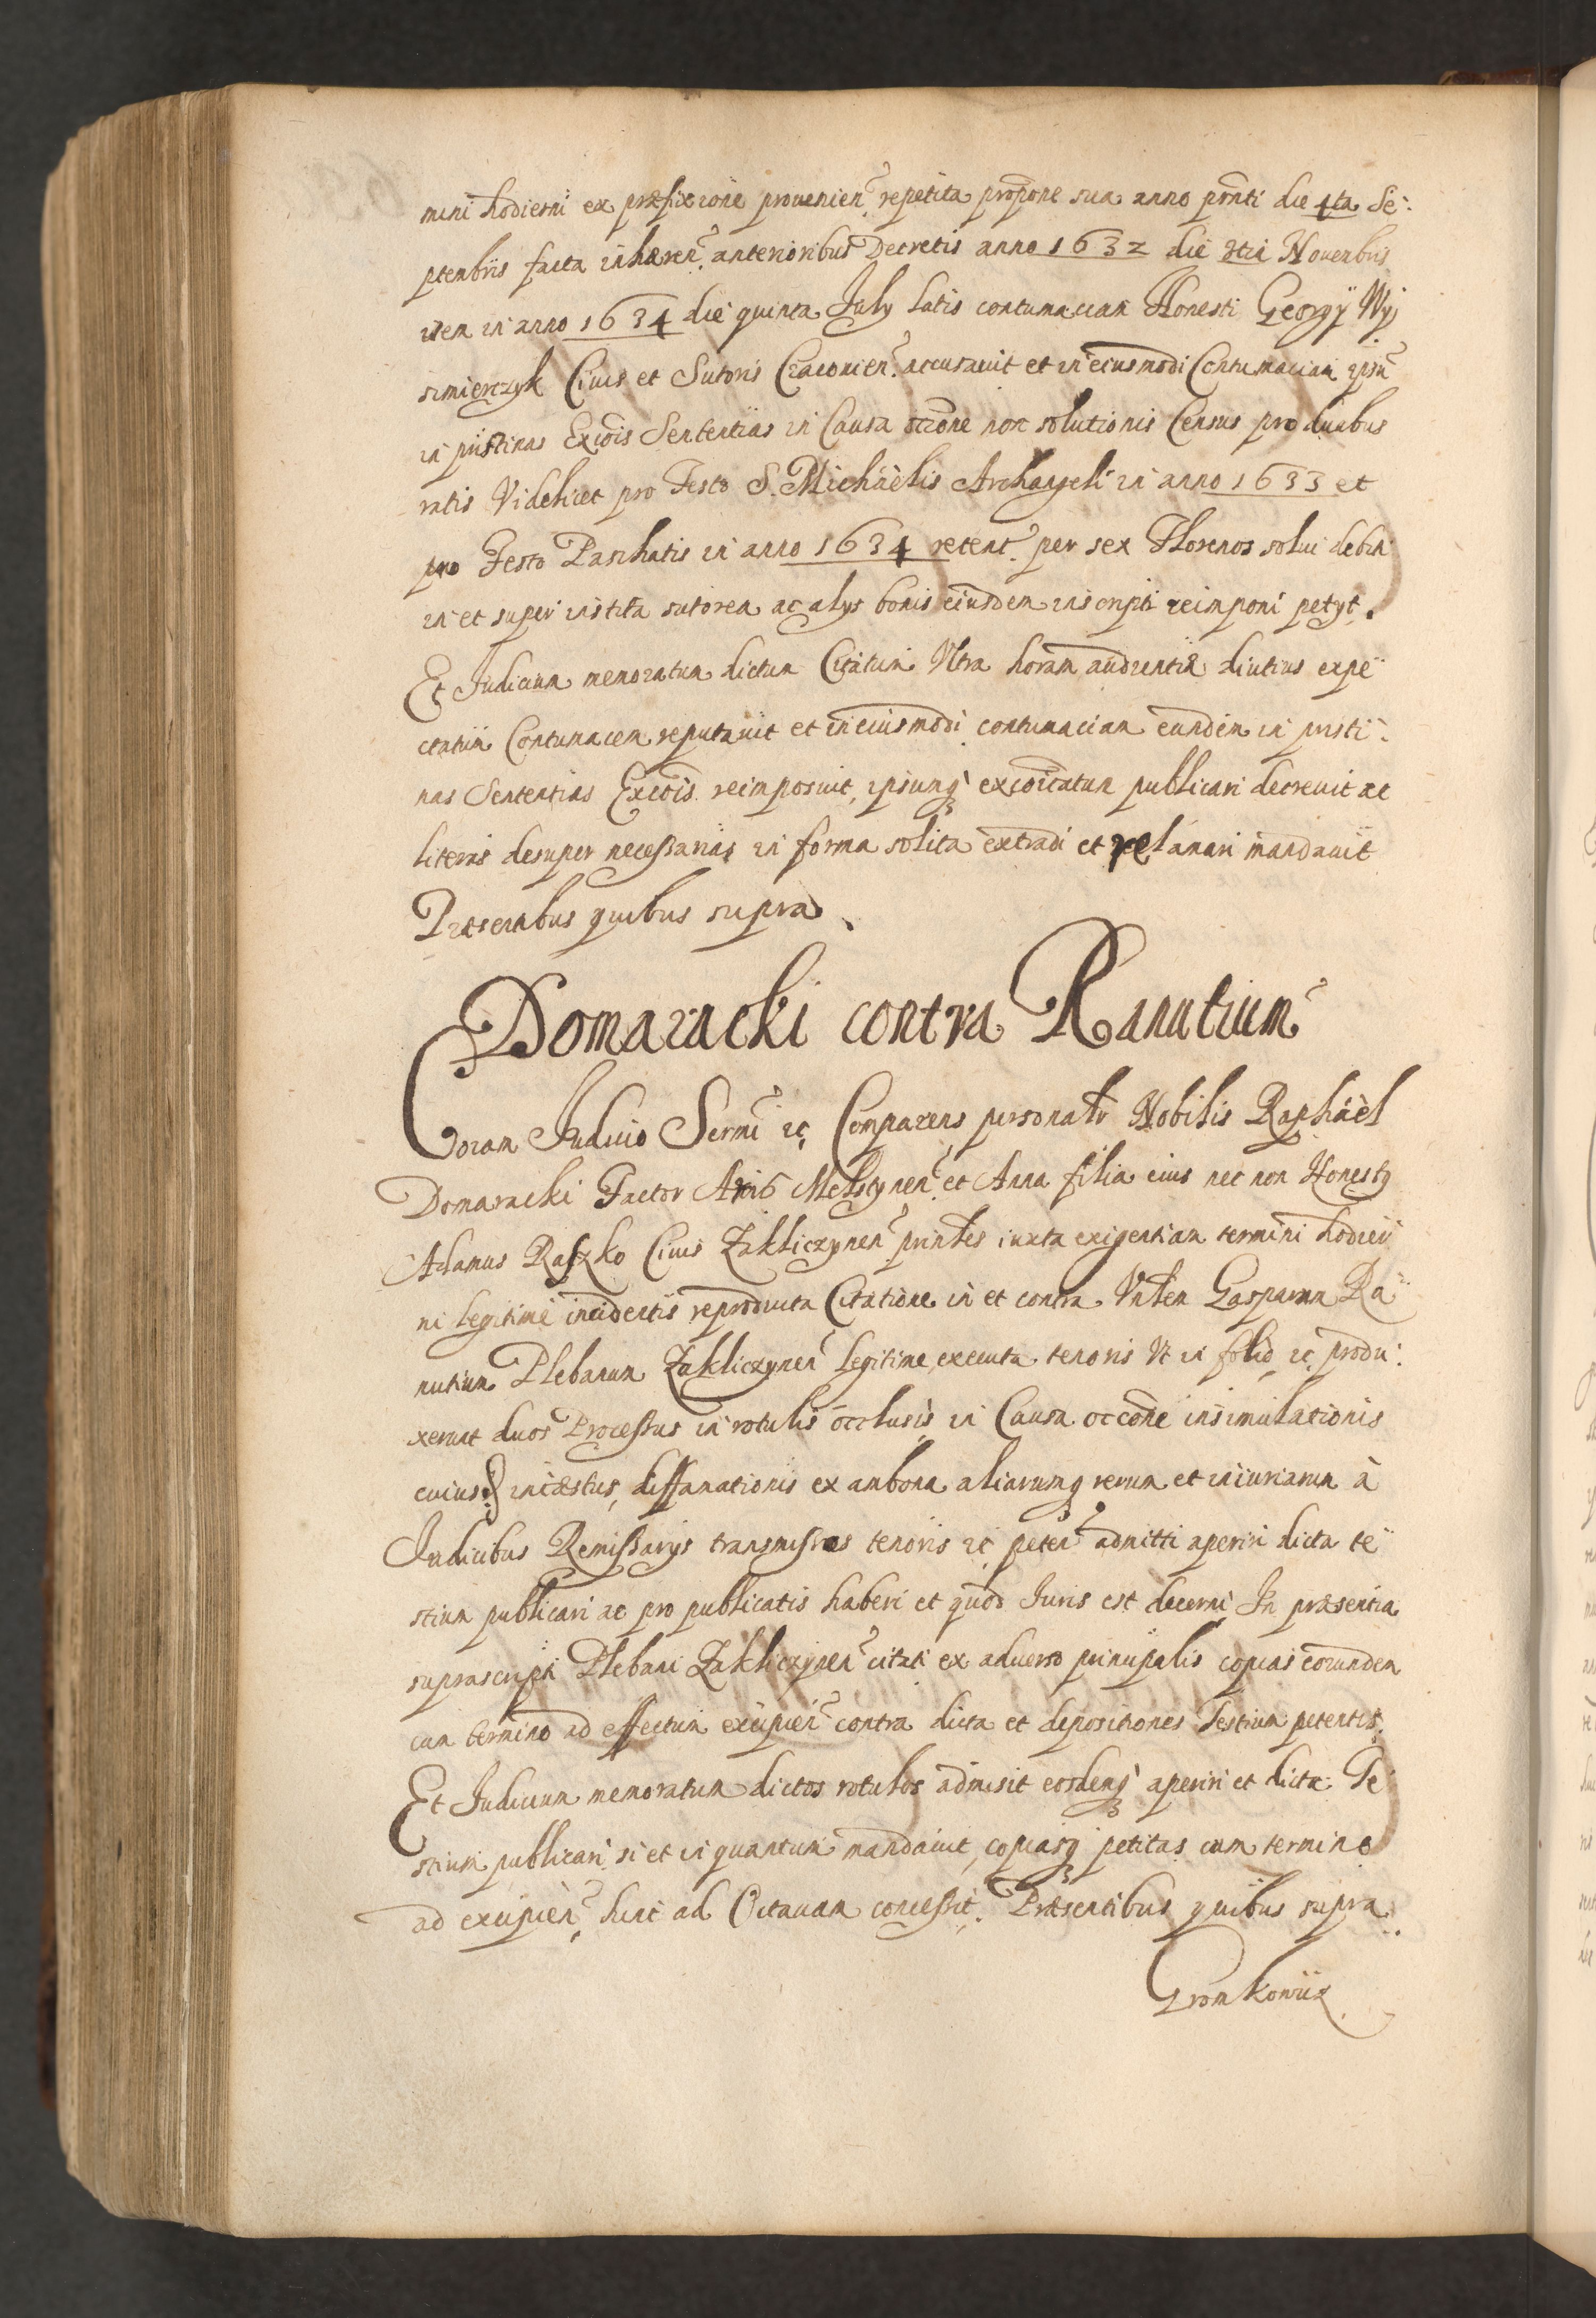 mini hodierni ex præfixione prouenien. repetita propone sua anno pnti die 4ta Se:
ptembris facta inhæren. anterioribus Decretis anno 1632 die Nouembris
item in anno 1634 die quinta July latis contumaciam Honesti Georgij Wy
smierczyk Ciuis et Sutoris Cracouien. accusauit et in eiusmodi Contumaciam ipsu
in pristinas Excois Sententias in Causa occone non solutionis Census pro duabus
ratis Videlicet pro Festo S. Michäelis Archangeli in anno 1633 et
pro Festo Paschatis in anno 1634 retent. per sex Florenos solui debiti
in et super instita sutorea ac alys bonis eiusdem inscripti reimponi petyt.
Et Judicium memoratum dictum Citatum Vltra horam audientiæ diutius expe
ctatum Contumacem reputauit et in eiusmodi contumaciam eundem in pristi:
nas Sententias Excois reimposuit, ipsumq excoicatum publicari decreuit ac
literas desuper necessarias in forma solita extradi et relaxari mandauit
Præsentibus quibus supra.
Domaracki contra Ranutium
Coram Judicio Sermi rc Comparens personalr Nobilis Raphäel
Domaracki Factor Arcis Melstynen. et Anna filia eius nec non Honestq
Adamus Raszko Ciuis Zakliczynen prinles iuxta exigentiam termini hodier
ni legitime incidentis reproducta Citatione in et contra Vnlem Gasparum Ra
nutium Plebanum Zakliczynen legitime executa tenoris Vt in folio rc produ:
xerunt duos Processus in rotulis occlusis in Causa occone insimulationis
cuiusd incæstus, diffamationis ex ambona aliarumq rerum et iniuriarum à
Judicibus Remissarys transmissos tenoris rc peten admitti aperiri dicta te
stium publicari ac pro publicatis haberi et quod Juris est decerni In præsentia
suprascripti Plebani Zakliczynen citati ex aduerso principalis copias eorundem
cum termino ad effectum excipien contra dicta et depositiones Testium petentis.
Et Judicium memoratum dictos rotulos admisit eosdemq aperiri et dicta Te
stium publicari si et in quantum mandauit, copiasq petitas cum termino
ad excipien. hinc ad Octauam concessit. Præsentibus quibus supra.